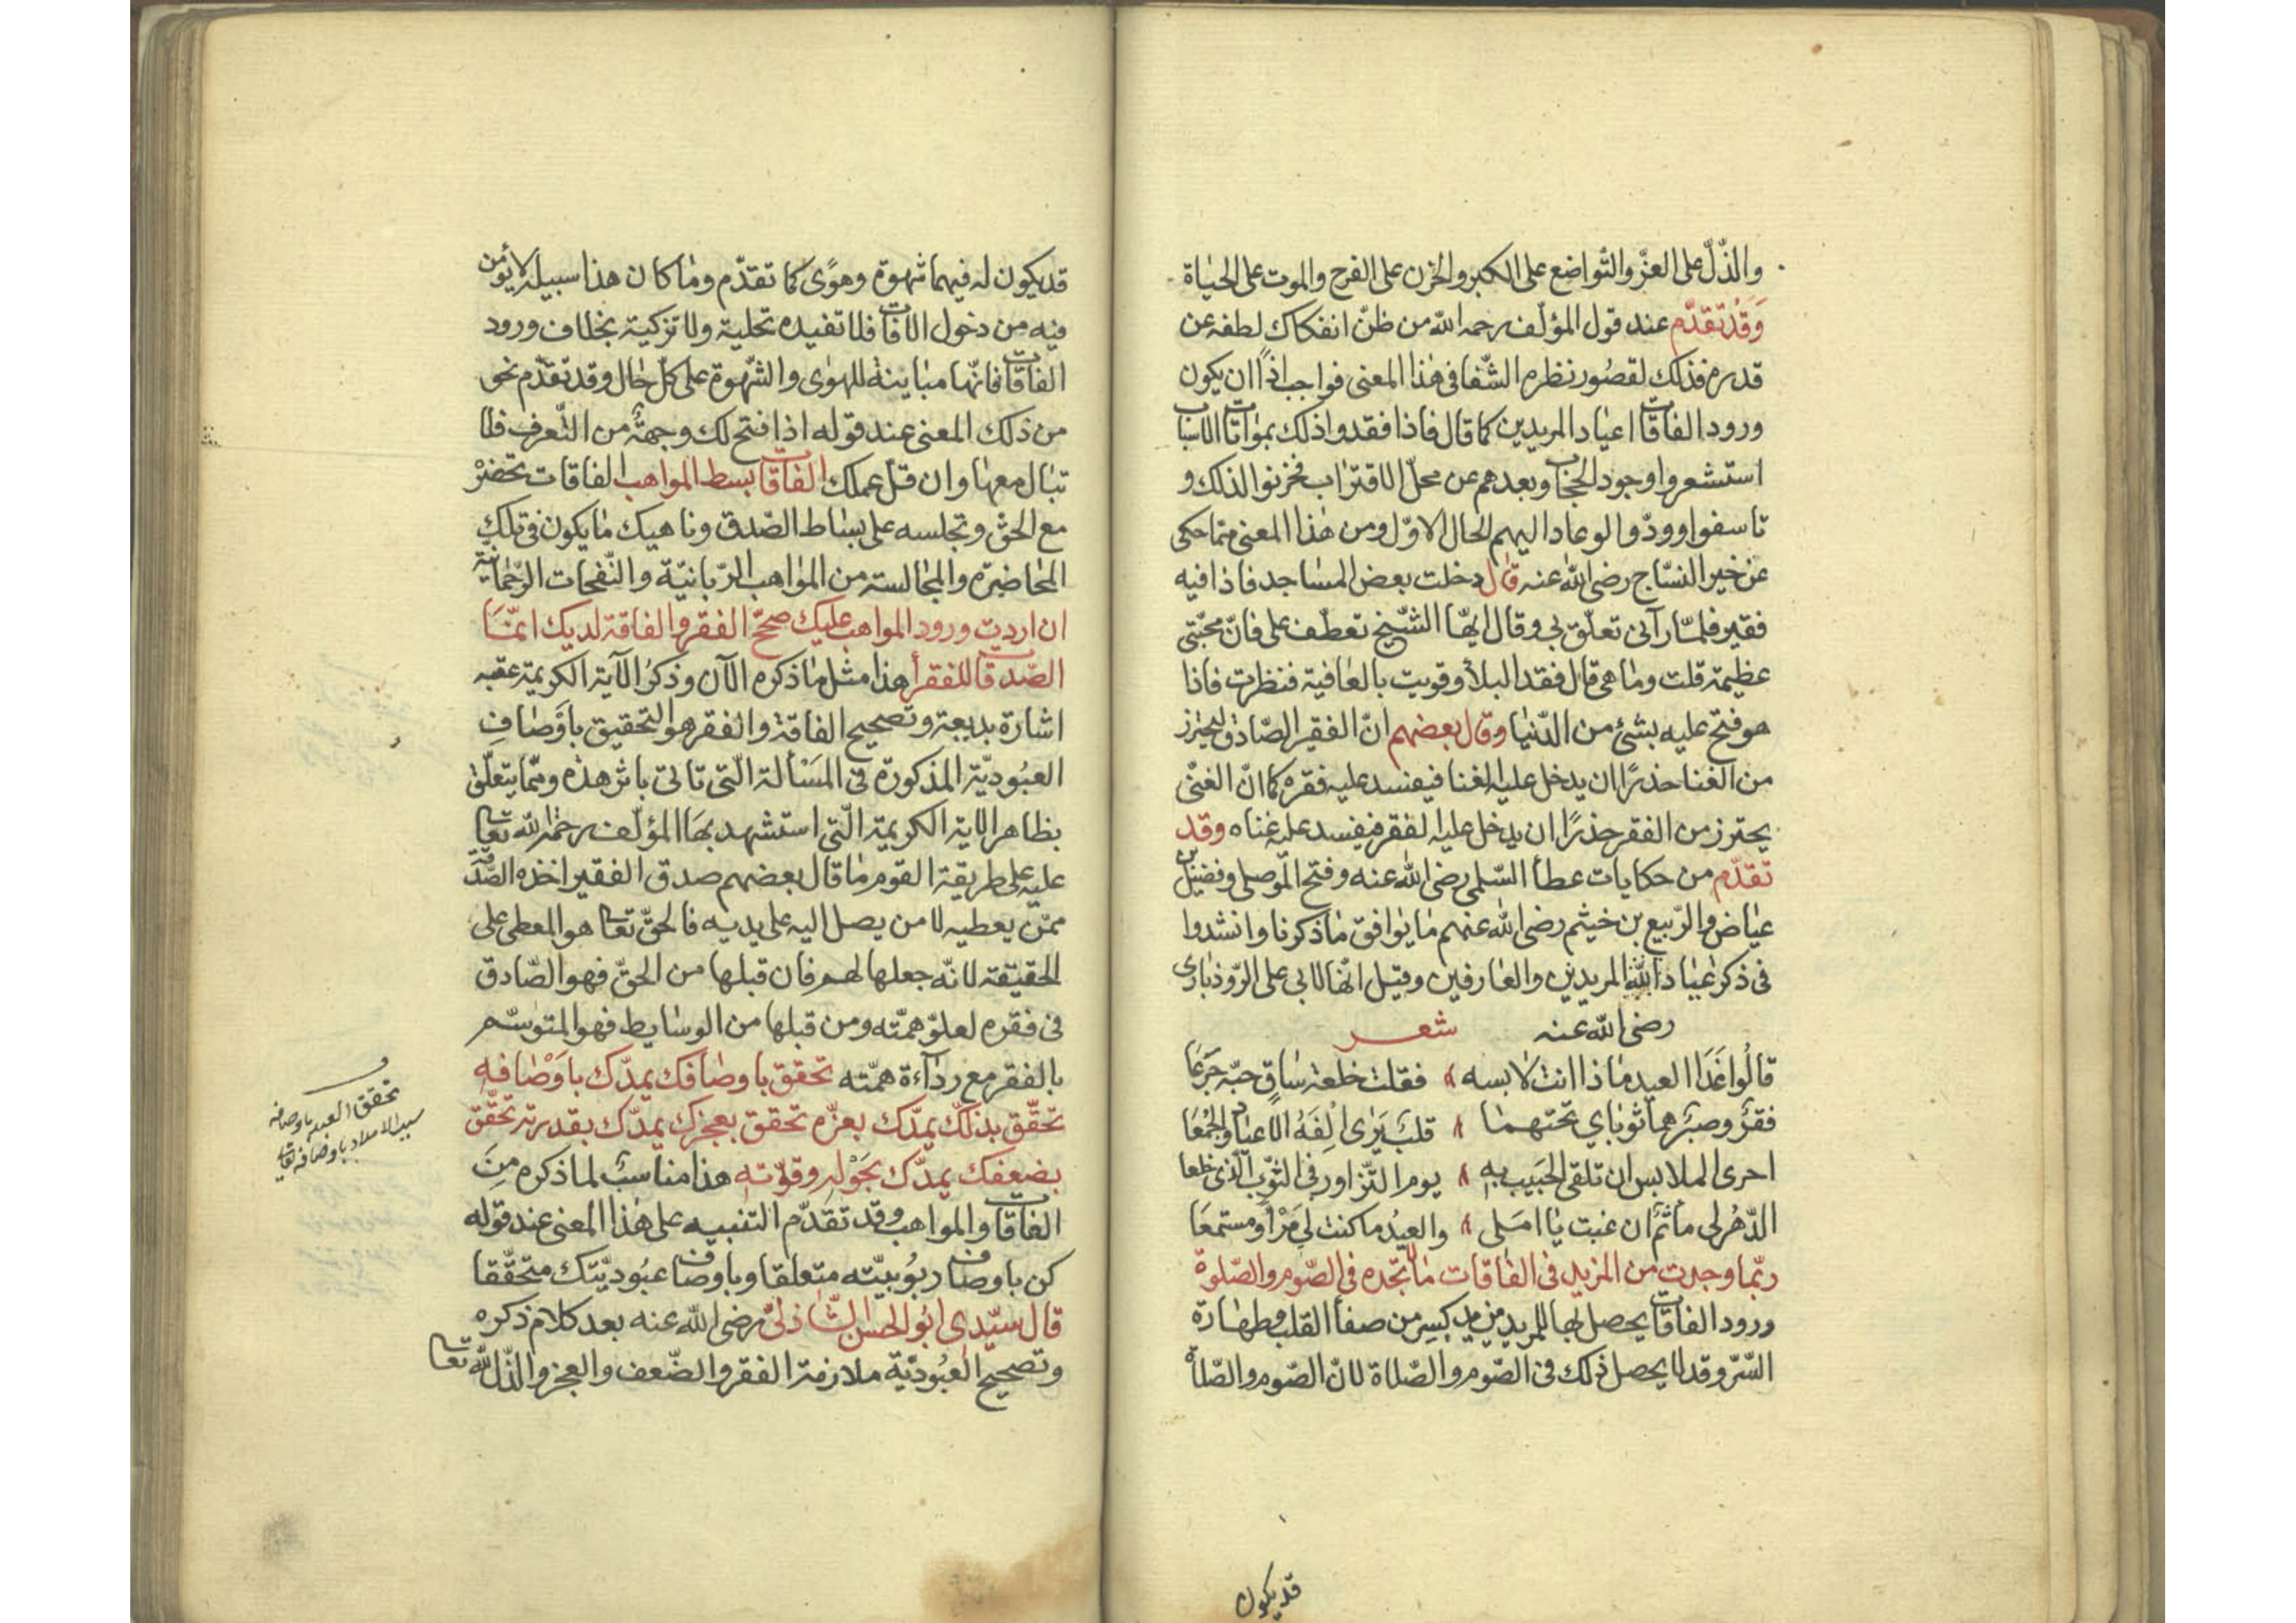 والذّلّ على العزّ والتّواضع على الكبر والحزن على الفرح والموت على الحيٰاة
وَقَدْ تقدّم عند قول المؤلّف رحمه اللّه من ظنّ انفكاك لطفه عن
قدره فذلك لقصُور نظره الشّفا فى هٰذا المعنى فواجب اذًا ان يكون
ورود الفاقات اعيٰاد المريدين كما قال فاذا فقدوا ذلك بموٰاتاة الاسبٰاب
استشعروا وجود الحجٰاب وبعدهم عن محلّ الاقترٰاب فحزنوا لذلك و
تاسفوا وودّوا لو عاد اليهم الحال الاوّل ومن هٰذا المعنى ممّا حكى
عن خير النسّاج رضى اللّٰه عنه قٰال دخلت بعض المسٰاجد فاذا فيه
فقير فلمّا رآنى تعلّق بى وقال ايّها الشّيخ تعطّف علىّ فانّ محنتى
عظيمة قلت ومٰا هى قال فقد البلأ وقويت بالعٰافية فنظرت فاذا
هو فتح عليه بشئ من الدّنيٰا وقٰال بعضهم انّ الفقير الصّادق ليحترز
من الغنا حذرًا ان يدخل عليه الغنا فيفسد عليه فقره كما انّ الغنىّ
يحترز من الفقر حذرًا ان يدخل عليه الفقر فيفسد عليه غناه وقد
تقدّم من حكايات عطأ السّلمى رضى اللّٰه عنه وفتح الموصلى وفضيل بن
عيٰاض والرّبيع بن خيثم رضى اللّٰه عنهم مٰا يوٰافق مٰا ذكرنا وانشدوا
فى ذكر عيٰاد اللّه المريدين والعٰارفين وقيل انّهٰا لابى على الرّوذبٰارى
رضى اللّٰه عنه شعر
قالُوا غَدَا العيد مٰاذا انت لابسه فقلت خلعة سٰاقٍ حبّه جَرَعَا
فقرٌ وصبرٌ هما ثوبٰاي تحتهما قلبٌ يَرٰى اِلفَهُ الاعيٰاد والجُمْعَا
احرى الملابس ان تلقى الحَبيب بهِ يوم التّزاور فى الثّوب الّذى خلعا
الدّهر لى مأثم ان غبت يٰا امَلى والعيدُ ما كنت لى مَرْأً ومستمعَا
ربّما وجدت من المزيد فى الفٰاقات مٰا لا تجده فى الصّوم والصّلوة
ورود الفاقات يحصل بها للمريد مزيد كبير من صفأ القلب وطهٰارة
السّرّ وقد لا يحصل ذلك فى الصّوم والصّلاة لانّ الصّوم والصّلاة
قد يكون
قد يكون له فيهما شهوة وهوًى كما تقدّم ومٰا كان هذا سبيله لا يؤمن
فيه من دخول الافات فلا تفيده تحلية ولا تزكية بخلاف ورود
الفاقات فانّها مبٰاينة للهوٰى والشّهوة على كلّ حٰال وقد تقدّم نحو
من ذلك المعنى عند قوله اذا فتح لك وجهةً من التّعرف فلا
تبٰال معهٰا وان قلّ عملك الفاقات بسط المواهب الفاقات تحضره
مع الحقّ وتجلسه على بسٰاط الصّدق وناهيك مٰا يكون فى تلك
المحٰاضرة والمجٰالسة من الموٰاهب الرّبّانيّة والنّفحات الرّحمٰانيّة
ان اردت ورود المواهب عليك صحّح الفقر والفاقة لديك انّمَا
الصّدقات للفقرأ هذا مثل مٰا ذكره الآن وذكرُ الآية الكريمة عقبه
اشارة بديعة وتصحيح الفاقة والفقر هو التحقيق باوَصٰافِ
العبُوديّة المذكورة فى المَسْألة الّتى تاتى باثر هذه وممّا يتعلّق
بظاهر الاية الكريمة الّتى استشهد بهَا المؤلّف رحمة اللّه تعالى
عليه على طريقة القوم مٰا قال بعضهم صدق الفقير اخذه الصّدقة
ممّن يعطيه لا من يصل اليه على يديه فالحقّ تعالى هو المعطى على
الحقيقة لانّه جعلها لهم فان قبلها من الحقّ فهو الصّادق
فى فقره لعلوّ همّته ومن قبلها من الوسٰايط فهو المتوسّم
بالفقر مع ردٰآءة همّته تحقق باوصٰافك يمدّك باوَصْافه
تحقّق بذلّك يمدّك بعزّه تحقق بعجزك يمدّك بقدرته تحقّق
بضعفك يمدّك بحَوْله وقوّته هذا مناسبٌ لما ذكره مِنَ
الفاقات والمواهب وقد تقدّم التنبيه على هٰذا المعنى عند قوله
كن باوصٰاف ربُوبيّته متعلقا وباوصٰاف عبُوديّتك متحقّقا
قال سيّدى ابُو الحسن الشّاذلىّ رضى اللّٰه عنه بعد كلام ذكره
وتصحيح العبُوديّة ملازمة الفقر والضّعف والعجز والذّل للّه تعالى
تحقق العبد باوصافه
سبب الامداد باوصافه تعالى